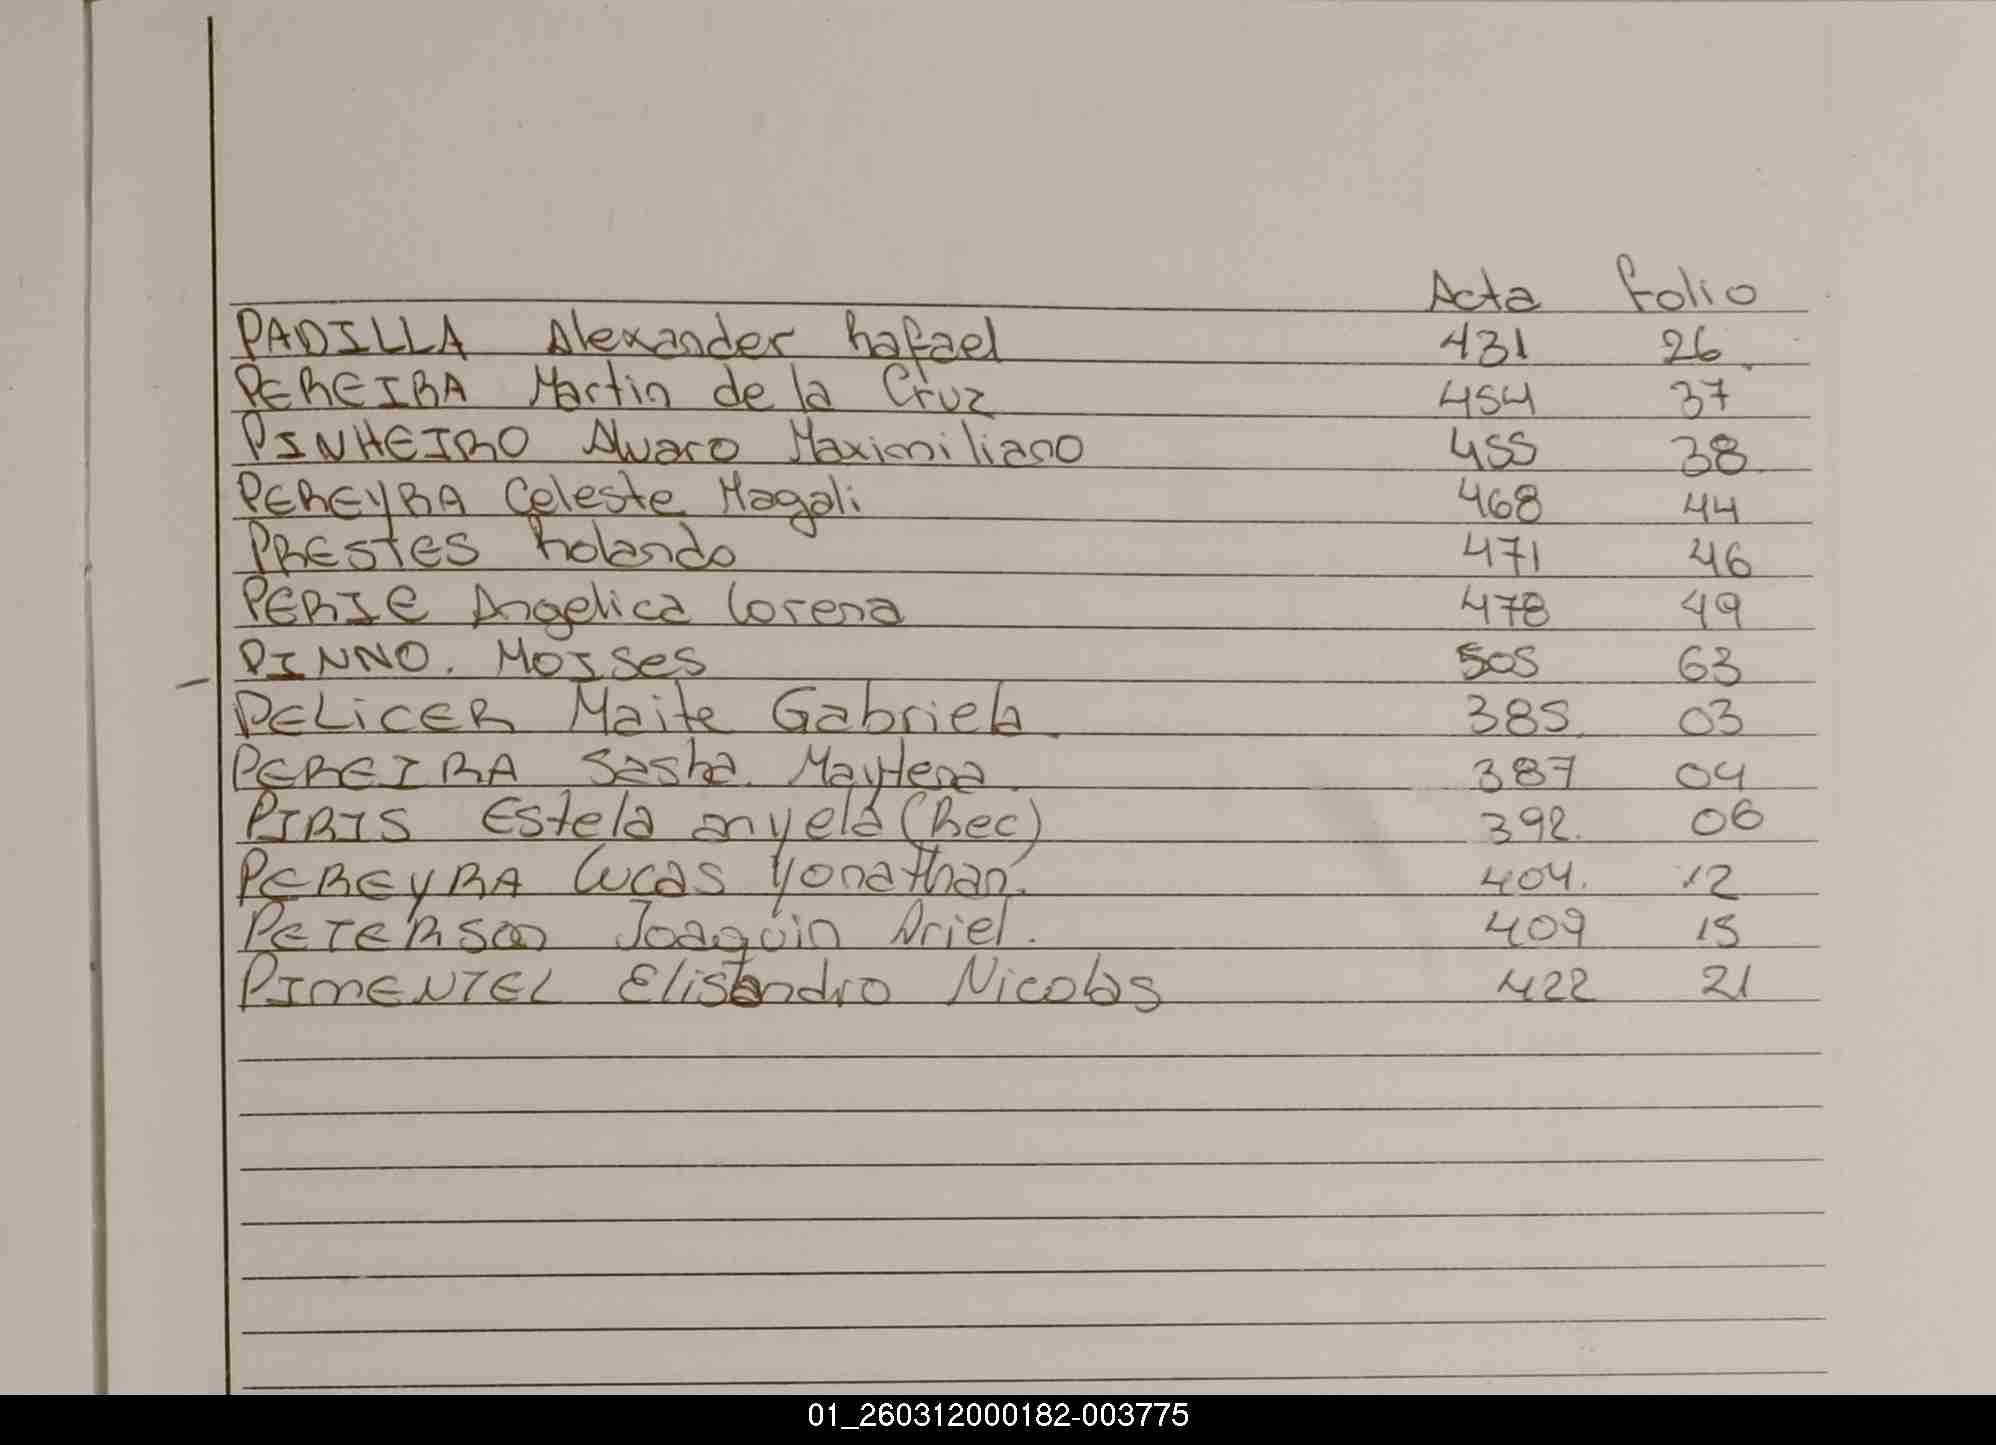 Acta Folio
PADILLA Alexander Rafael 431 26
PEREIRA Martin de la Cruz 454 37
PINHEIRO Alvaro Maximiliano 455 38
PEREYRA Celeste Magali 468 44
PRESTES Rolando 471 46
PERIE Angelica Lorena 478 49
PINNO. MOISes 505 63
PELiCER Maite Gabriela. 385. 03
PEREIRA Sasha. Maylena. 387 04
PIRIS Estela anyela (Rec) 392. 06
PEREYRA Lucas Yonathan. 404. 12
PETERSON Joaquin Ariel. 409 15
PIMENTEL Elisandro Nicolas 422 21
01_260312000182-003775